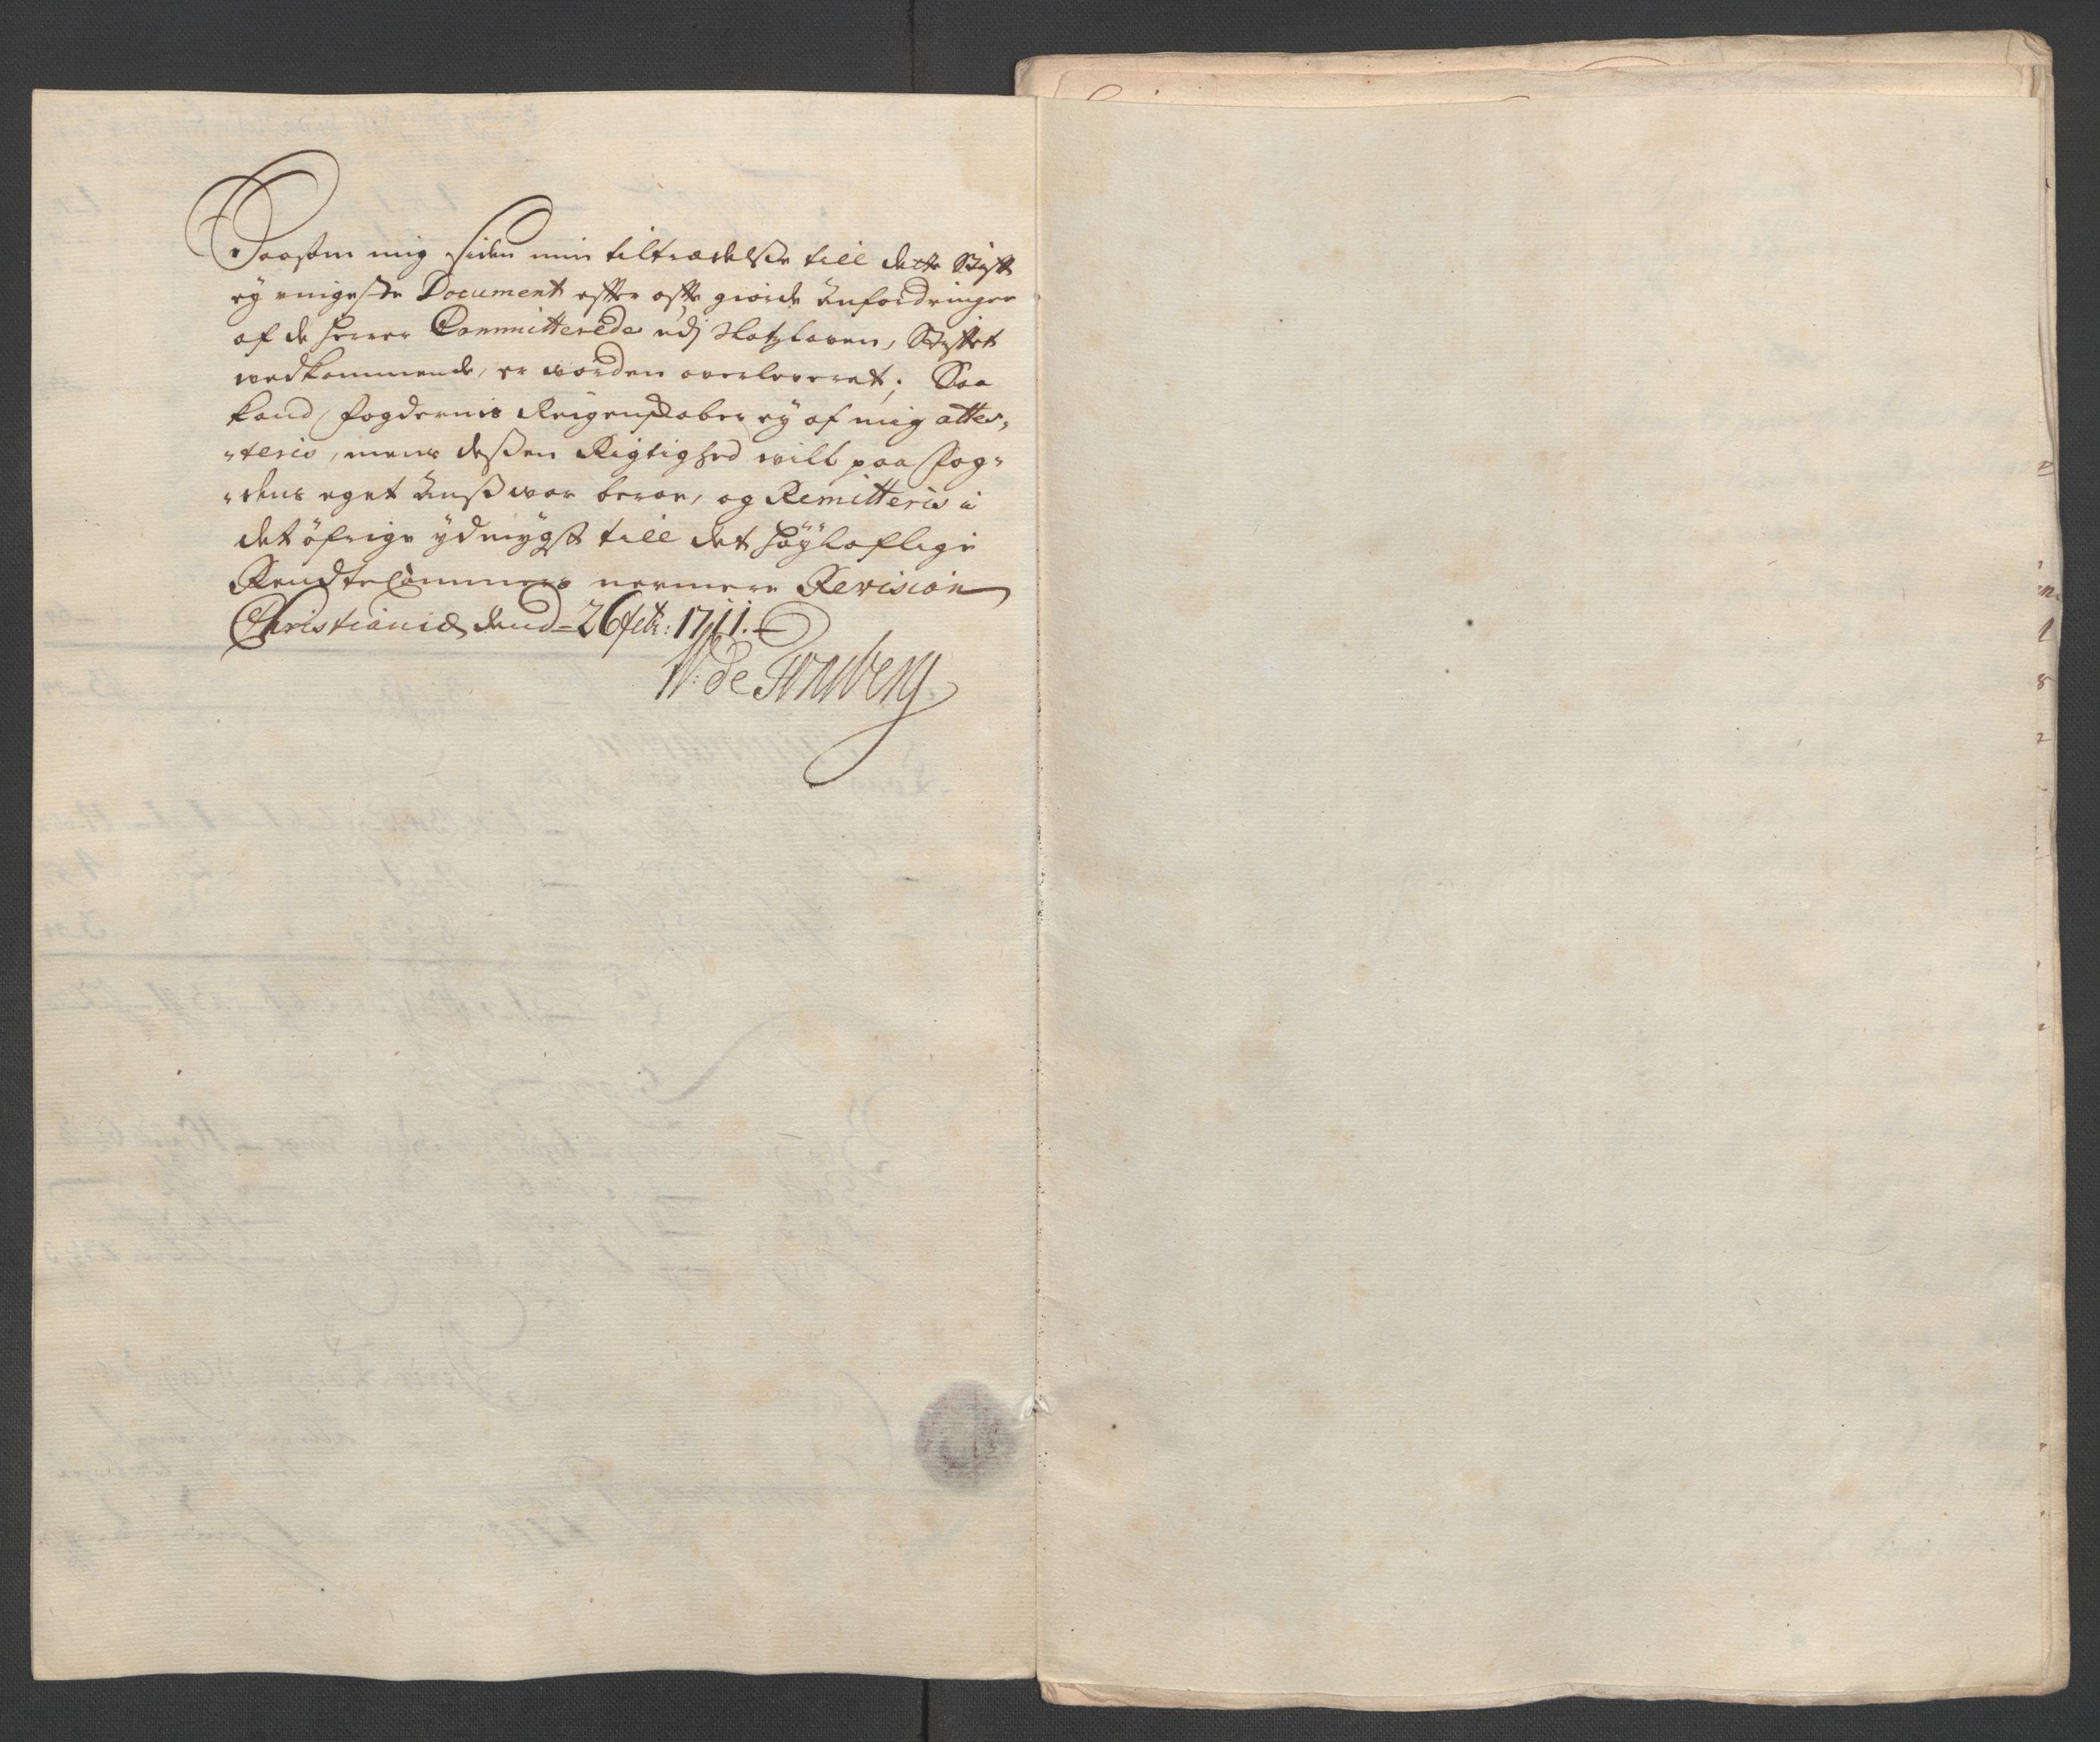 Saasom mig siden min tiltrædelse till dette Stift
ey enigeste Document effter offte giorde Anfordringer
af de herrer Committerede udj Slotzlowen, Stiftet
vedkommende, er worden overleveret; Saa
kand fogdernis Reigenskaber ey af mig attes„
„teris, mens deßen Rigtighed will paa fog„
„dens eget Answar beroe, og Remitteris i
det öfrige ydmygst till det höyloflige
RendteCammers nermere Revision
Christianiæ dend 26 febr: 1711.
W: de Tonsberg